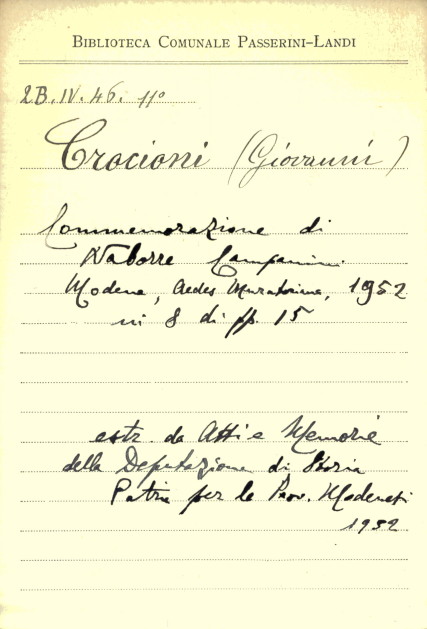 BIBLIOTECA COMUNALE PASSERINI-LANDI
2B.IV.46. 11º
Crocioni (Giovanni)
Commemorazione di
Naborre Campanini
Modena, Aedes Muratoriana, 1952
in 8 di pp. 15
estr. da Atti e Memorie
della Deputazione di Storia
Patria per le Prov. Modenesi
1952